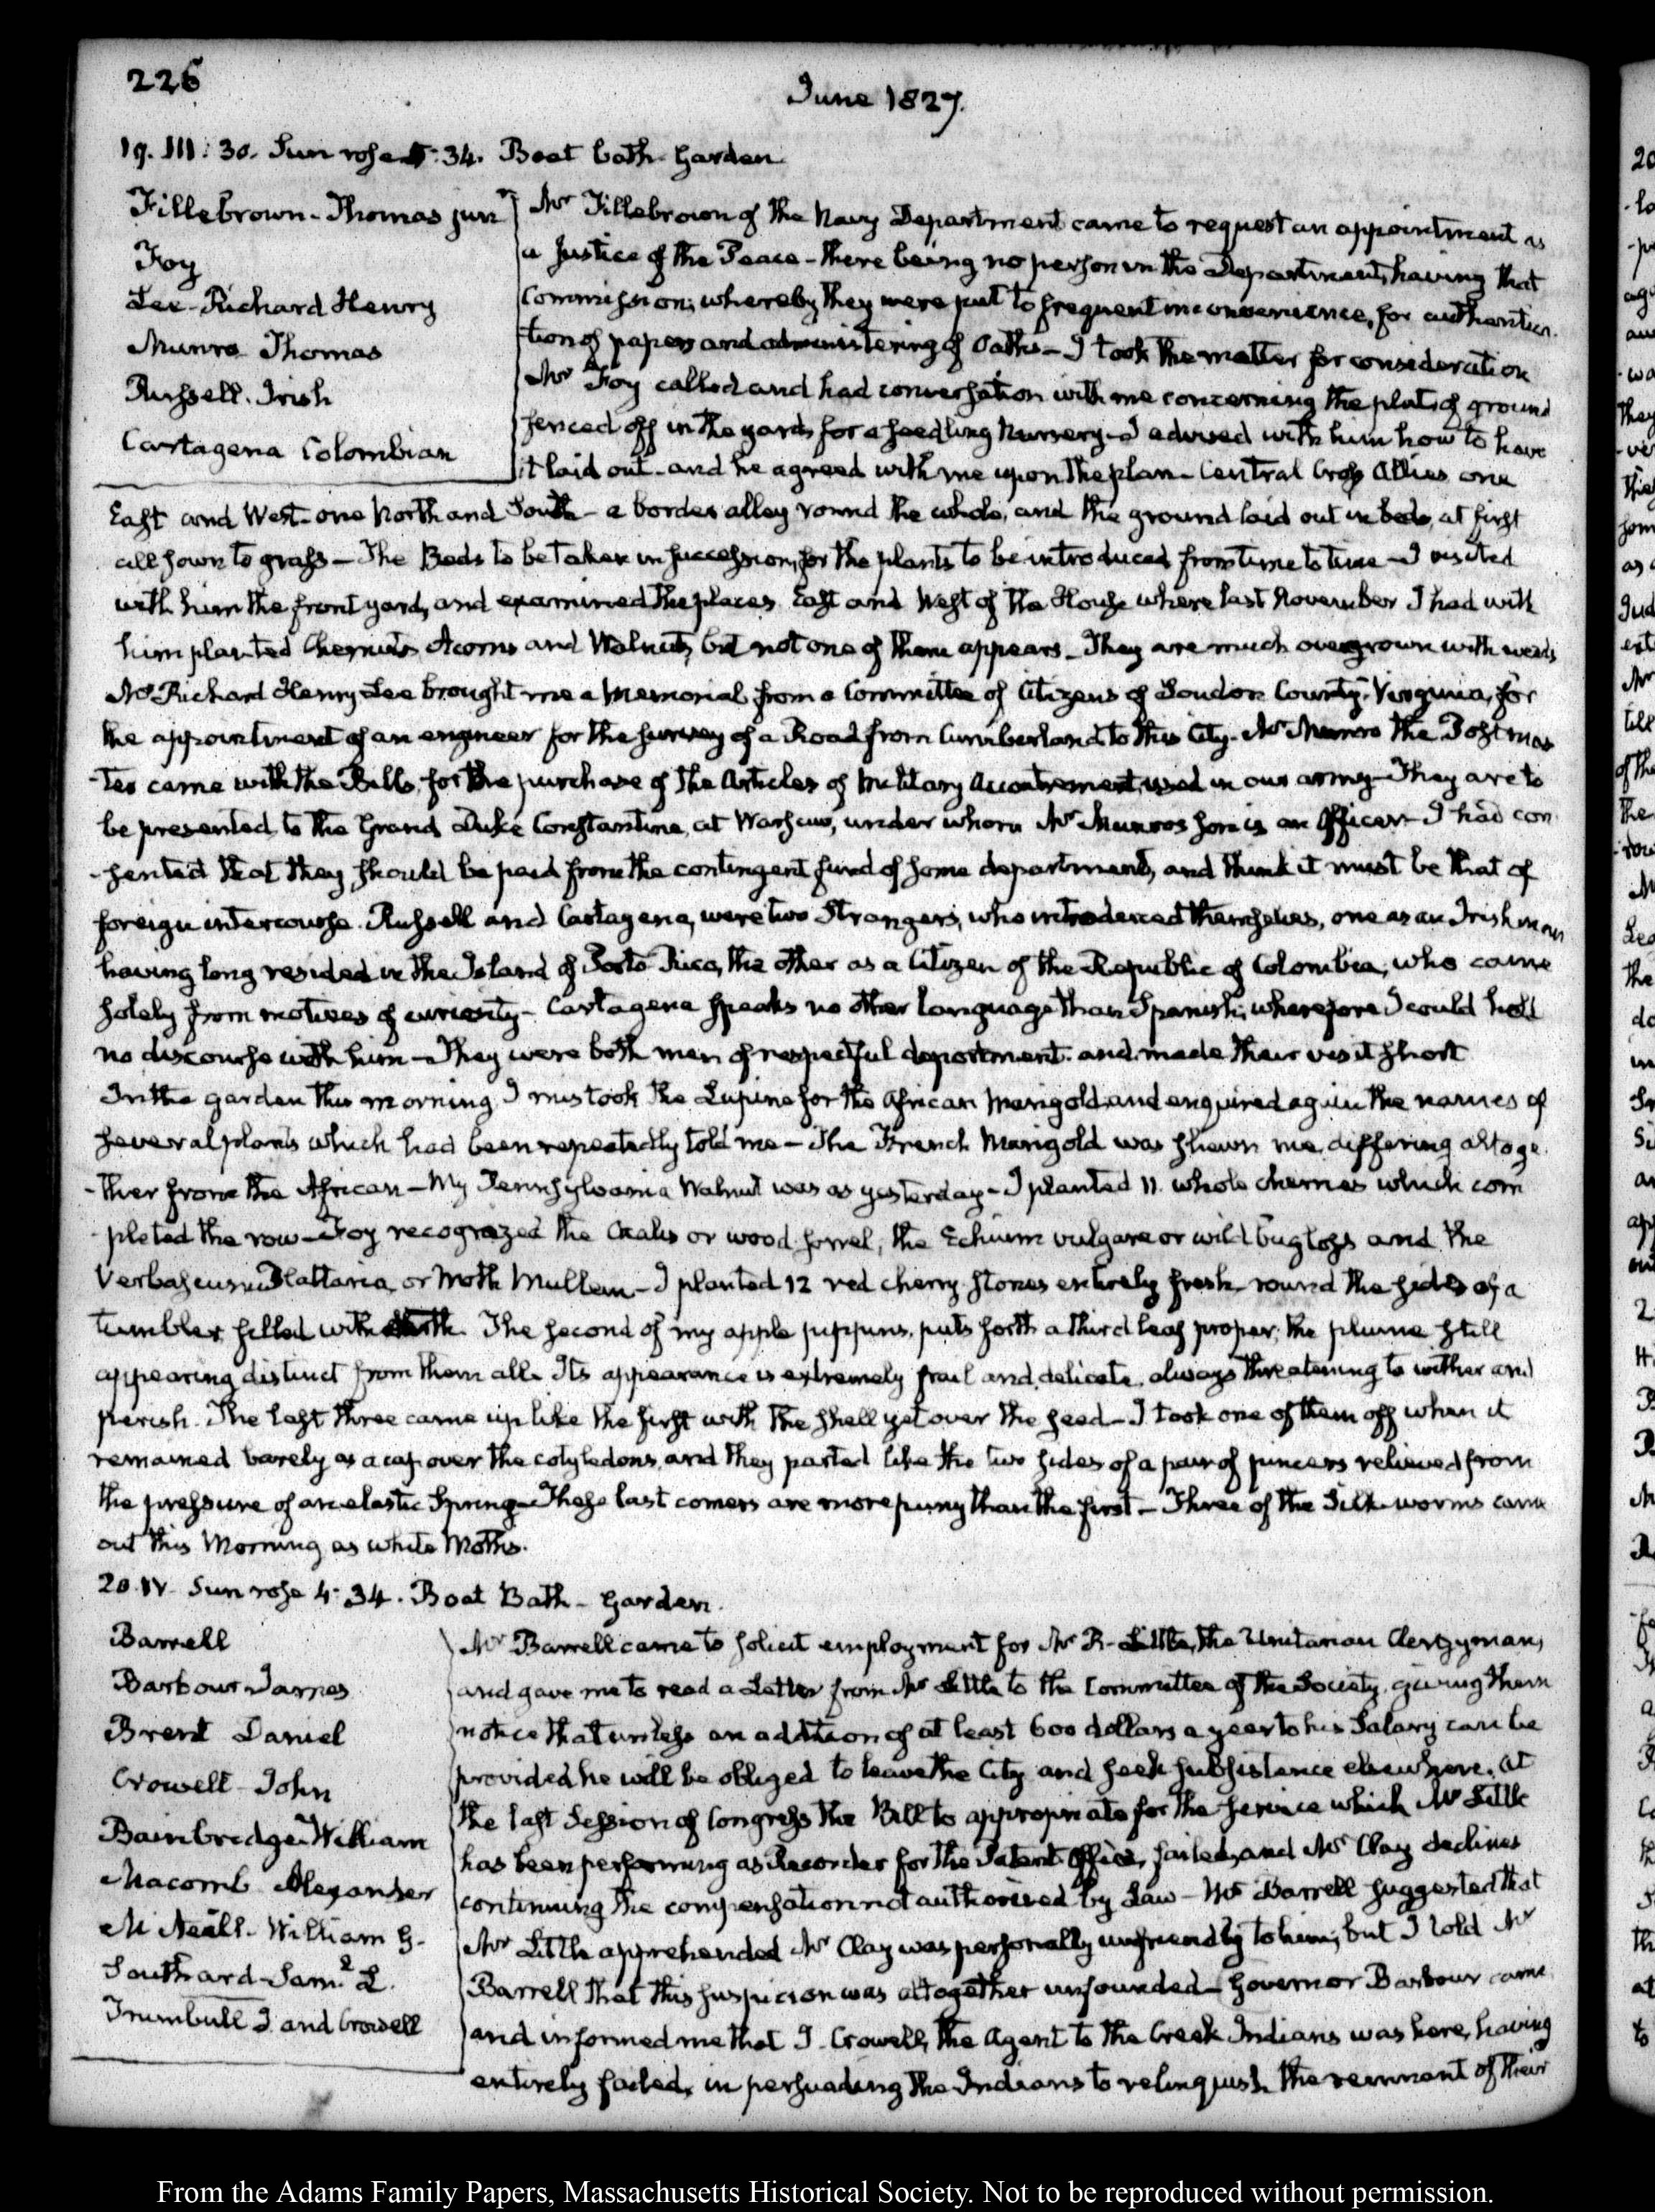 226
June 1827.
19. III: 30. Sun rose 4:34. Boat bath. Garden
Fillebrown-Thomas junr
Foy
Lee-Richard Henry
Munro Thomas
Russell. Irish
Cartagena Colombian
Mr Fillebrown of the Navy Department came to request an appointment as
a Justice of the Peace - there being no person in the Department, having that
Commission; whereby they were put to frequent inconvenience, for authentica-
tion of papers and administering of Oaths - I took the matter for consideration
Mr Foy called and had conversation with me concerning the plat of ground
fenced off in the yard, for a seedling Nursery - I advised with him how to have
it laid out - and he agreed with me upon the plan - Central Cross Allies one
East and West - one North and South - a border alley round the whole, and the ground laid out in beds, at first
all sown to grass - The Beds to be taken in succession, for the plants to be introduced from time to time - I visited
with him the front yard, and examined the places East and West of the House where last November I had with
him planted Chesnuts Acorns and Walnuts, but not one of them appears - They are much overgrown with weeds
Mr Richard Henry Lee brought me a Memorial from a Committee of Citizens of Loudon County, Virginia, for
the appointment of an engineer for the survey of a Road from Cumberland to this City. Mr Munro the Postmas
-ter came with the Bills, for the purchase of the Articles of Military Accoutrement, used in our army - They are to
be presented to the Grand Duke Constantine, at Warsaw, under whom Mr Munro's son is an Officer - I had con-
-sented that they should be paid from the contingent fund of some department, and think it must be that of
foreign intercourse. Russell and Cartagena, were two Strangers, who introduced themselves, one as an Irishman
having long resided in the Island of Porto Rico, the other as a Citizen of the Republic of Colombia, who came
solely from motives of curiosity - Cartagena speaks no other language than Spanish, wherefore I could hold
no discourse with him - They were both men of respectful deportment. and made their visit short
In the garden this morning I mistook the Lupine for the African Marigold and enquired again the names of
several plants which had been repeatedly told me - The French Marigold was shewn me, differing altoge-
-ther from the African - My Pennsylvania Walnut was as yesterday - I planted 11. whole cherries which com
-pleted the row - Foy recognized the Oxalis or wood-sorrel, the Echium vulgare or wild bugloss and the
Verbascum Blattaria, or Moth Mullein - I planted 12 red cherry-stones entirely fresh, round the sides of a
tumbler filled with earth. The second of my apple pippins, puts forth a third leaf proper; the plume still
appearing distinct from them all. Its appearance is extremely frail and delicate, always threatening to wither and
perish. The last three came up like the first with the shell yet over the seed - I took one of them off when it
remained barely as a cap over the cotyledons, and they parted like the two sides of a pair of pincers relieved from
the pressure of an elastic Spring - These last comers are more puny than the first - Three of the Silk-worms came
out this Morning as white Moths.
20. IV. Sun rose 4:34. Boat Bath - Garden.
Barrell
Barbour James
Brent Daniel
Crowell - John
Bainbridge William
Macomb Alexander
McNeill - William G.
Southard - Saml L.
Trumbull J. and Crowell
Mr Barrell came to solicit employment for Mr R. Little, the Unitarian Clergyman,
and gave me to read a Letter from Mr Little to the Committee of the Society, giving them
notice that unless an addition of at least 600 dollars a year to his Salary can be
provided he will be obliged to leave the City and seek subsistence elsewhere. At
the last Session of Congress the Bill to appropriate for the service which Mr Little
has been performing as Recorder for the Patent Office, failed, and Mr Clay declines
continuing the compensation not authorised by Law - Mr Barrell suggested that
Mr Little apprehended Mr Clay was personally unfriendly to him; but I told Mr
Barrell that this suspicion was altogether unfounded - Governor Barbour came
and informed me that J. Crowell, the Agent to the Creek Indians was here, having
entirely failed, in persuading the Indians to relinquish the remnant of their
From the Adams Family Papers, Massachusetts Historical Society. Not to be reproduced without permission.